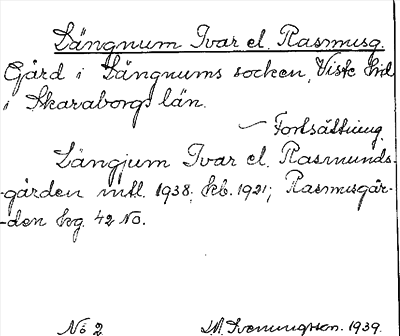 Längnum Ivar el. Rasmusg.
Gård i Längnums socken, Viste hd
i Skaraborgs län.
— Fortsättning.
Längjum Ivar el. Rasmunds-
-gården mtl. 1938, kb. 1921; Rasmusgår-
-den hg. 42 No.
No 2 M. Svenungsson. 1939.